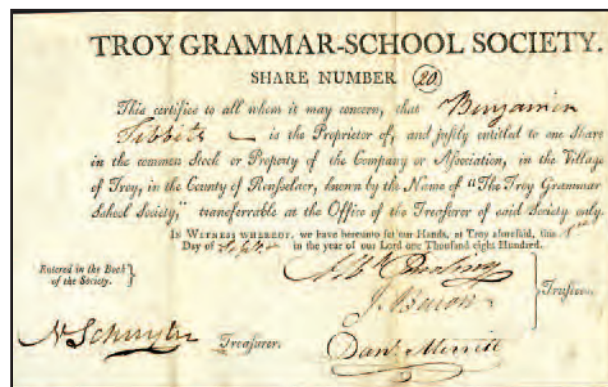 TROY GRAMMAR-SCHOOL SOCIETY.
SHARE NUMBER 20
This certifies to all whom it may concern, that Benjamin
Tibbits is the Proprietor of, and justly entitled to one Share
in the common Stock or Property of the Company or Association, in the Village
of Troy, in the County of Rensselaer, known by the Name of "The Troy Grammar
School Society," transferrable at the Office of the Treasurer of said Society only.
IN WITNESS WHEREOF, we have hereunto set our Hands, at Troy aforesaid, this
Day of Sept. in the year of our Lord one Thousand eight Hundred.
Entered in the Book
of the Society.
Trustees.
N Schuyler Treasurer.
Danl. Merritt